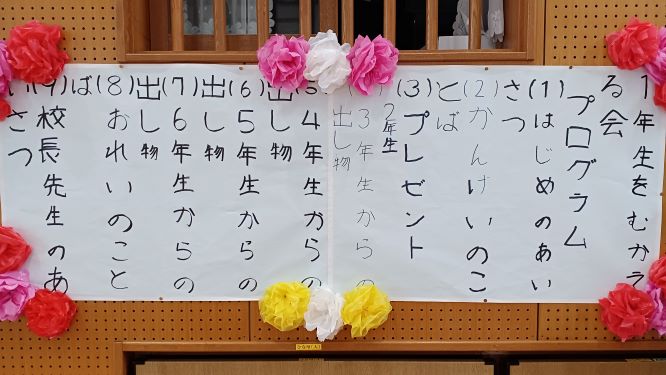 1年生をむかえ
る会
プログラム
(1)はじめのあい
さつ
(2)かんげいのこ
とば
(3)プレゼント
2年生
3年生からの
出し物
(5)4年生からの
出し物
(6)5年生からの
出し物
(7)6年生からの
出し物
(8)おれいのこと
ば
(9)校長先生のあ
さつ